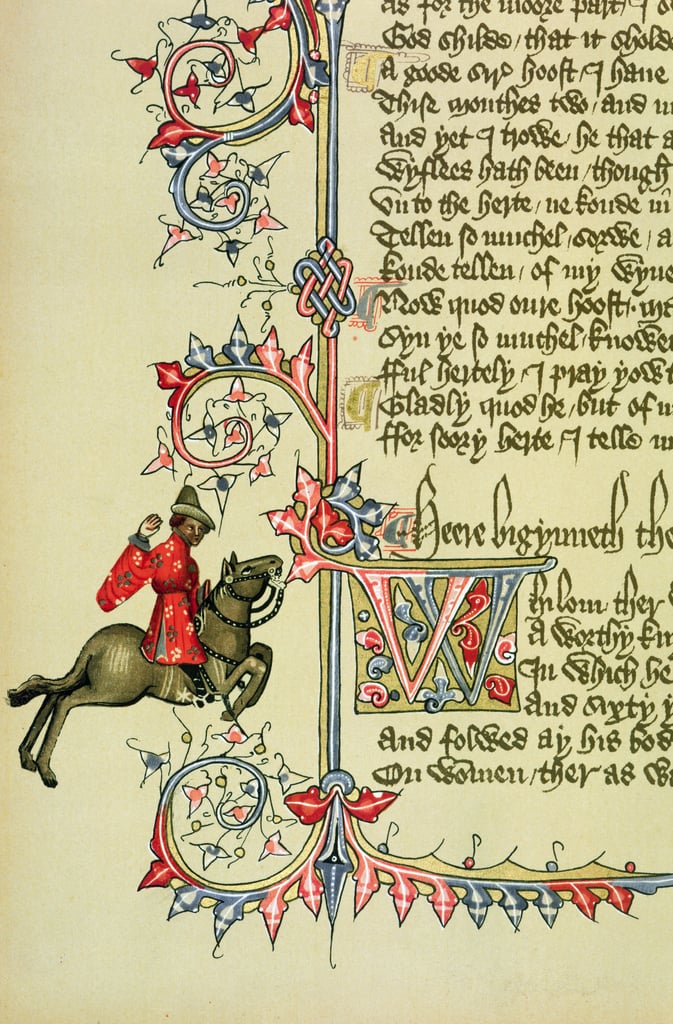 as for the moore part / I s
God shilde / that it sholde
A goode sire hoost / I haue
Thise monthes two / and m
And yet I trowe / he that a
Wyflees hath been / though
Vn to the herte / ne koude in
Tellen so muchel / sorwe / a
Koude tellen / of my wyue
Now quod oure hoost /
Syn ye so muchel / knowe
fful hertely / I pray yow t
Gladly quod he / but of m
ffor soory herte / I telle m
Heere bigynneth the
Whilom ther w
A worthy kn
In which he
And sixty y
And folwed ay his bod
On wommen / ther as wa